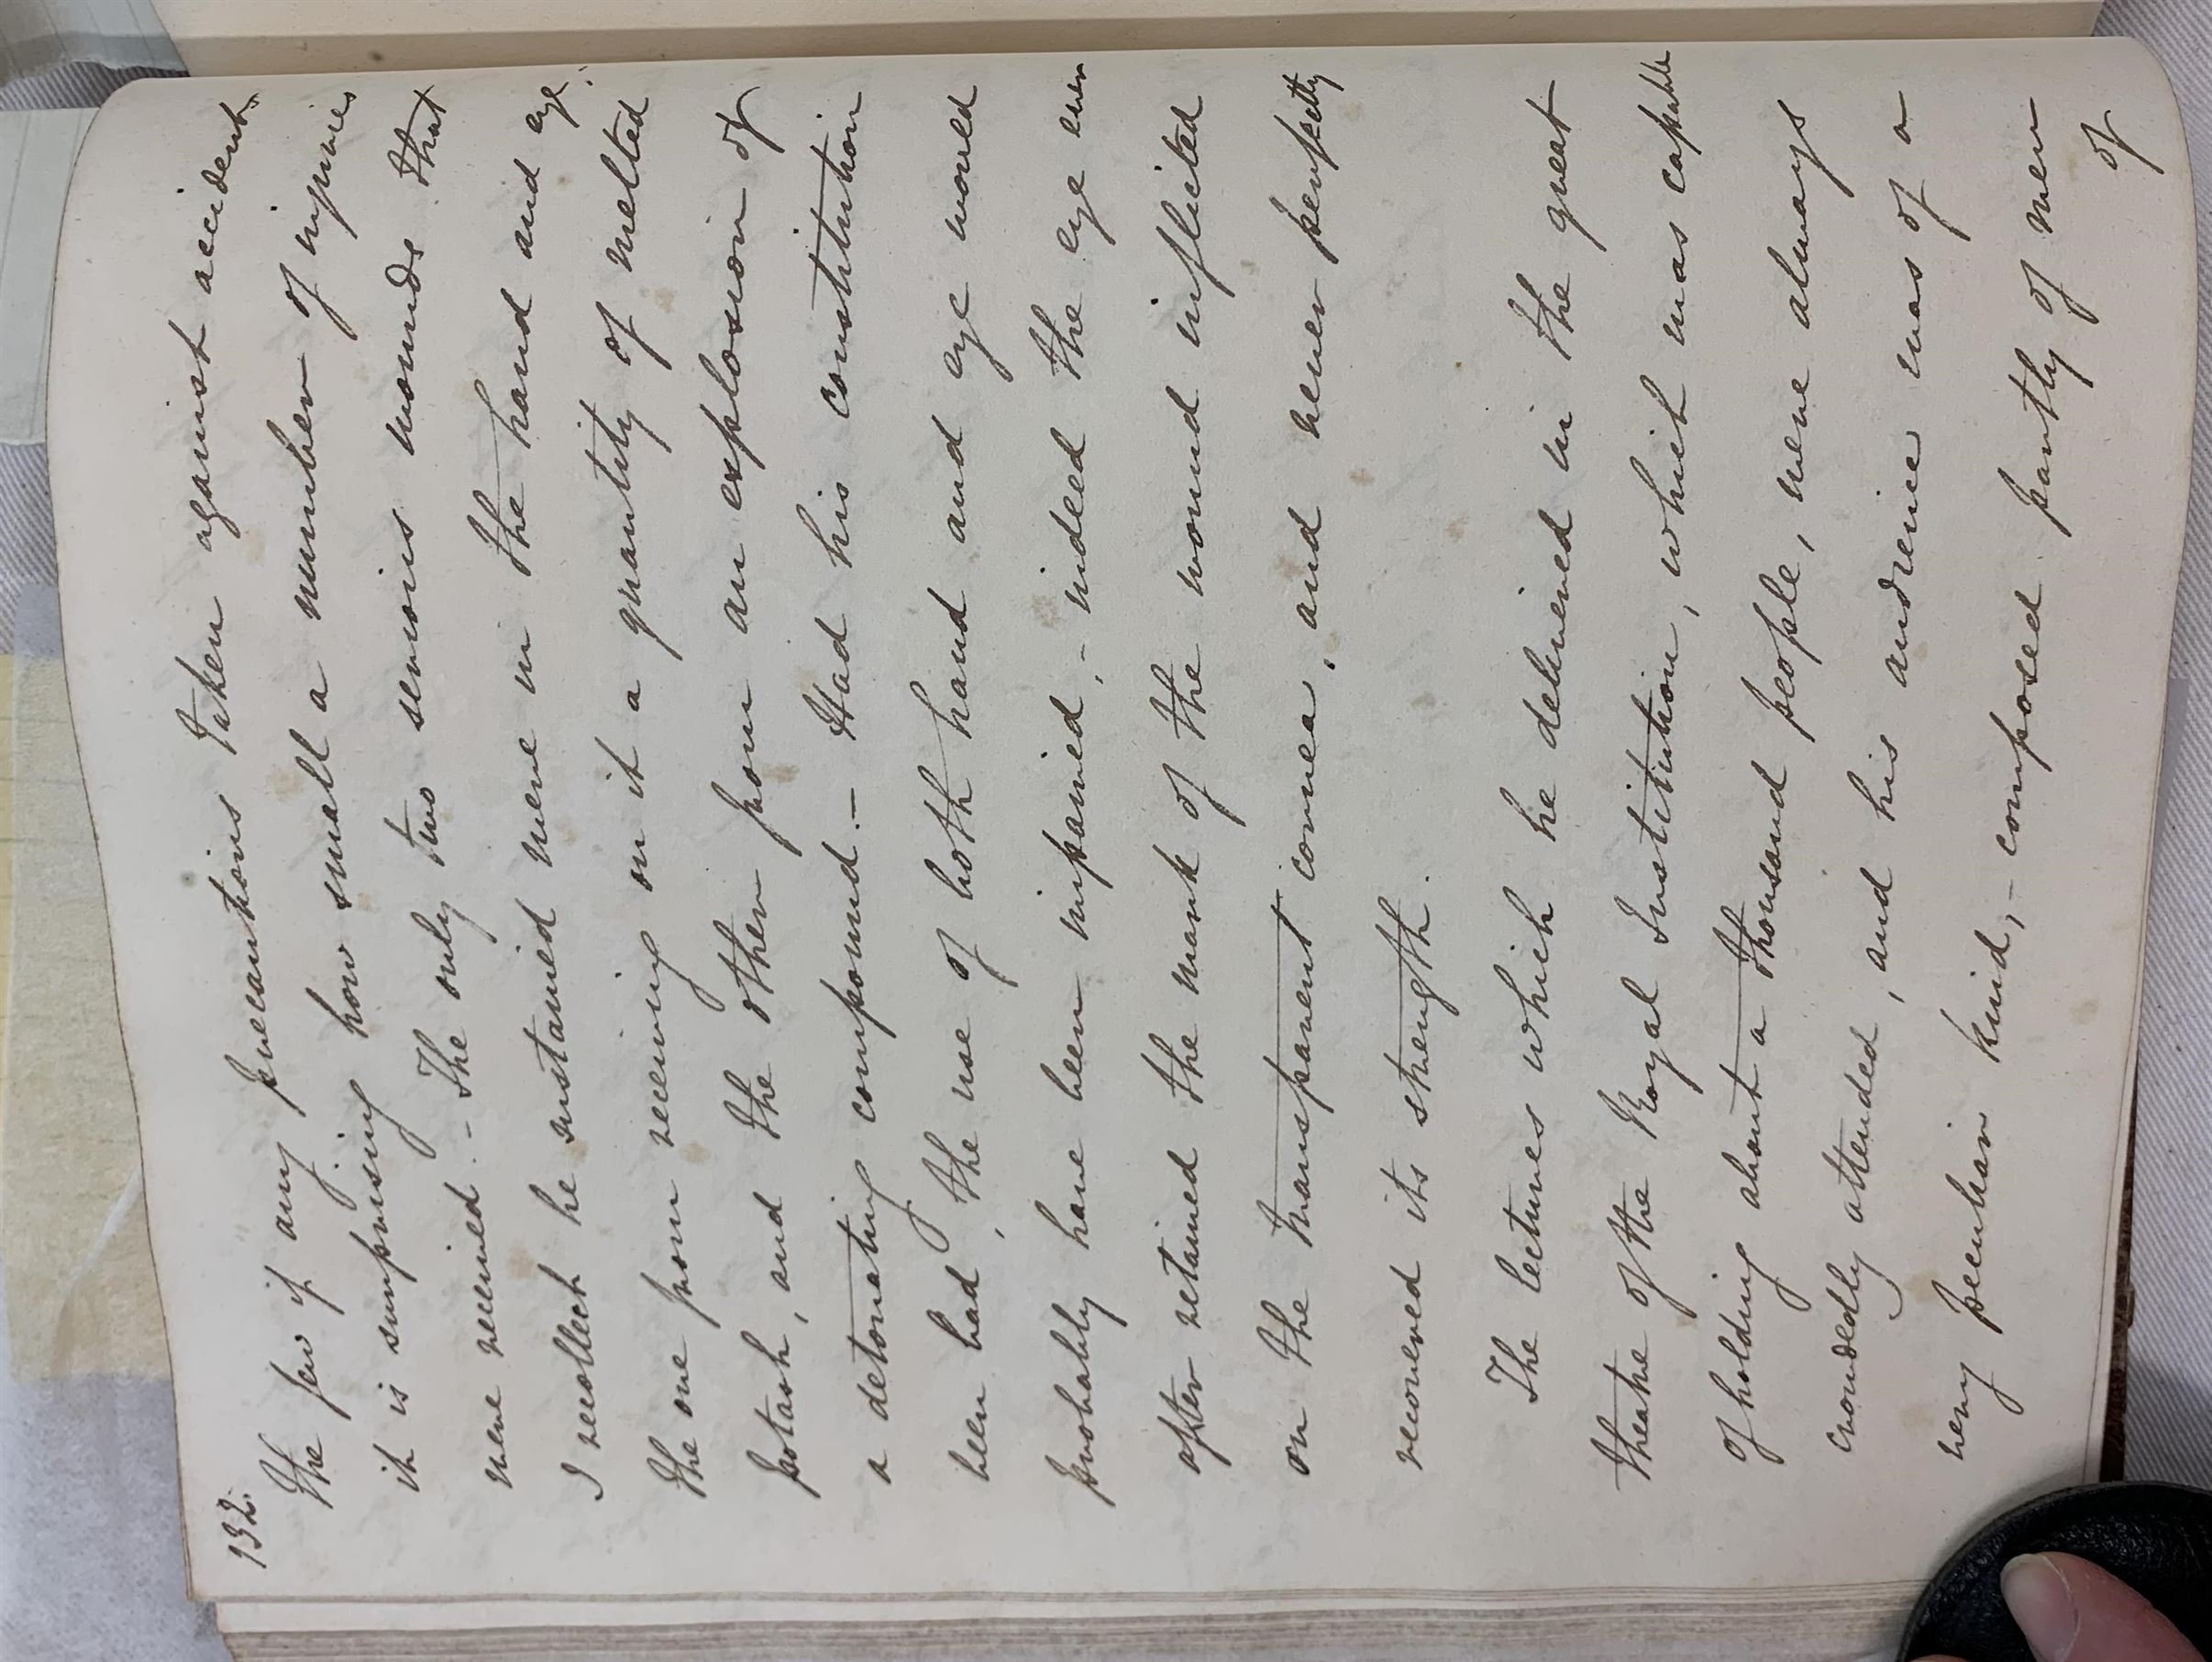 132.
the few if any precautions taken against accidents
it is surprising how small a number of injuries
were received. - The only two serious wounds that
I recollect he sustained were in the hand and eye,-
the one from receiving on it a quantity of melted
potash, and the other from an explosion of
a detonating compound. - Had his constitution
been bad, the use of both hand and eye would
probably have been impaired, - indeed the eye ever
after retained the mark of the wound inflicted
on the transparent cornea, and never perfectly
recovered its strength.
The lectures which he delivered in the great
theatre of the Royal Institution, which was capable
of holding about a thousand people, were always
crowdedly attended, and his audience was of a
very peculiar kind, - composed partly of men
of